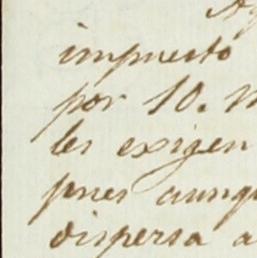 impuesto
por 10. m
les exigen
pues aunq
dispersa a